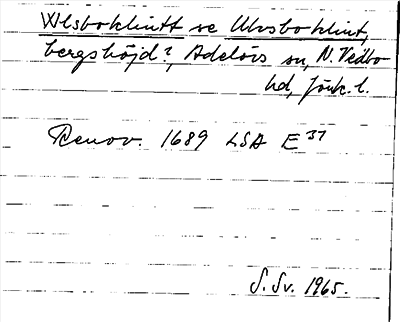 Wlsboklintt se Ulvsboklint,
bergshöjd?, Adelövs sn, N. Vedbo
hd, Jönk. l.
Renov. 1689 LSA E 37
S. Sv. 1965.